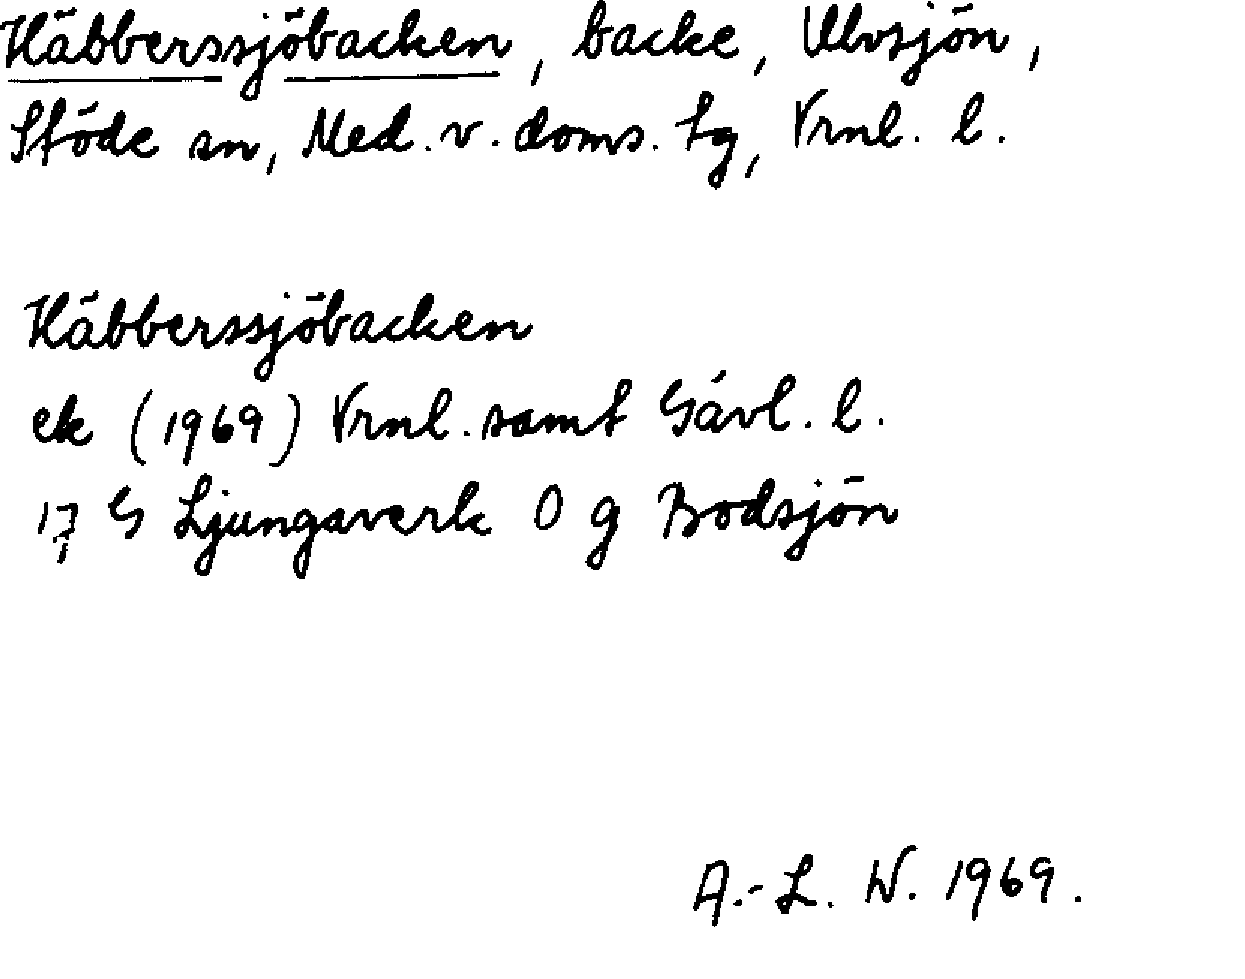 Häbberssjöbacken, backe, Ulvsjön,
Stöde sn, Med. v. doms. tg, Vrnl. l.
Häbberssjöbacken
ek (1969) Vrnl. samt Gävl. l.
17 G Ljungaverk 0 g Bodsjön
A.-L. W. 1969.